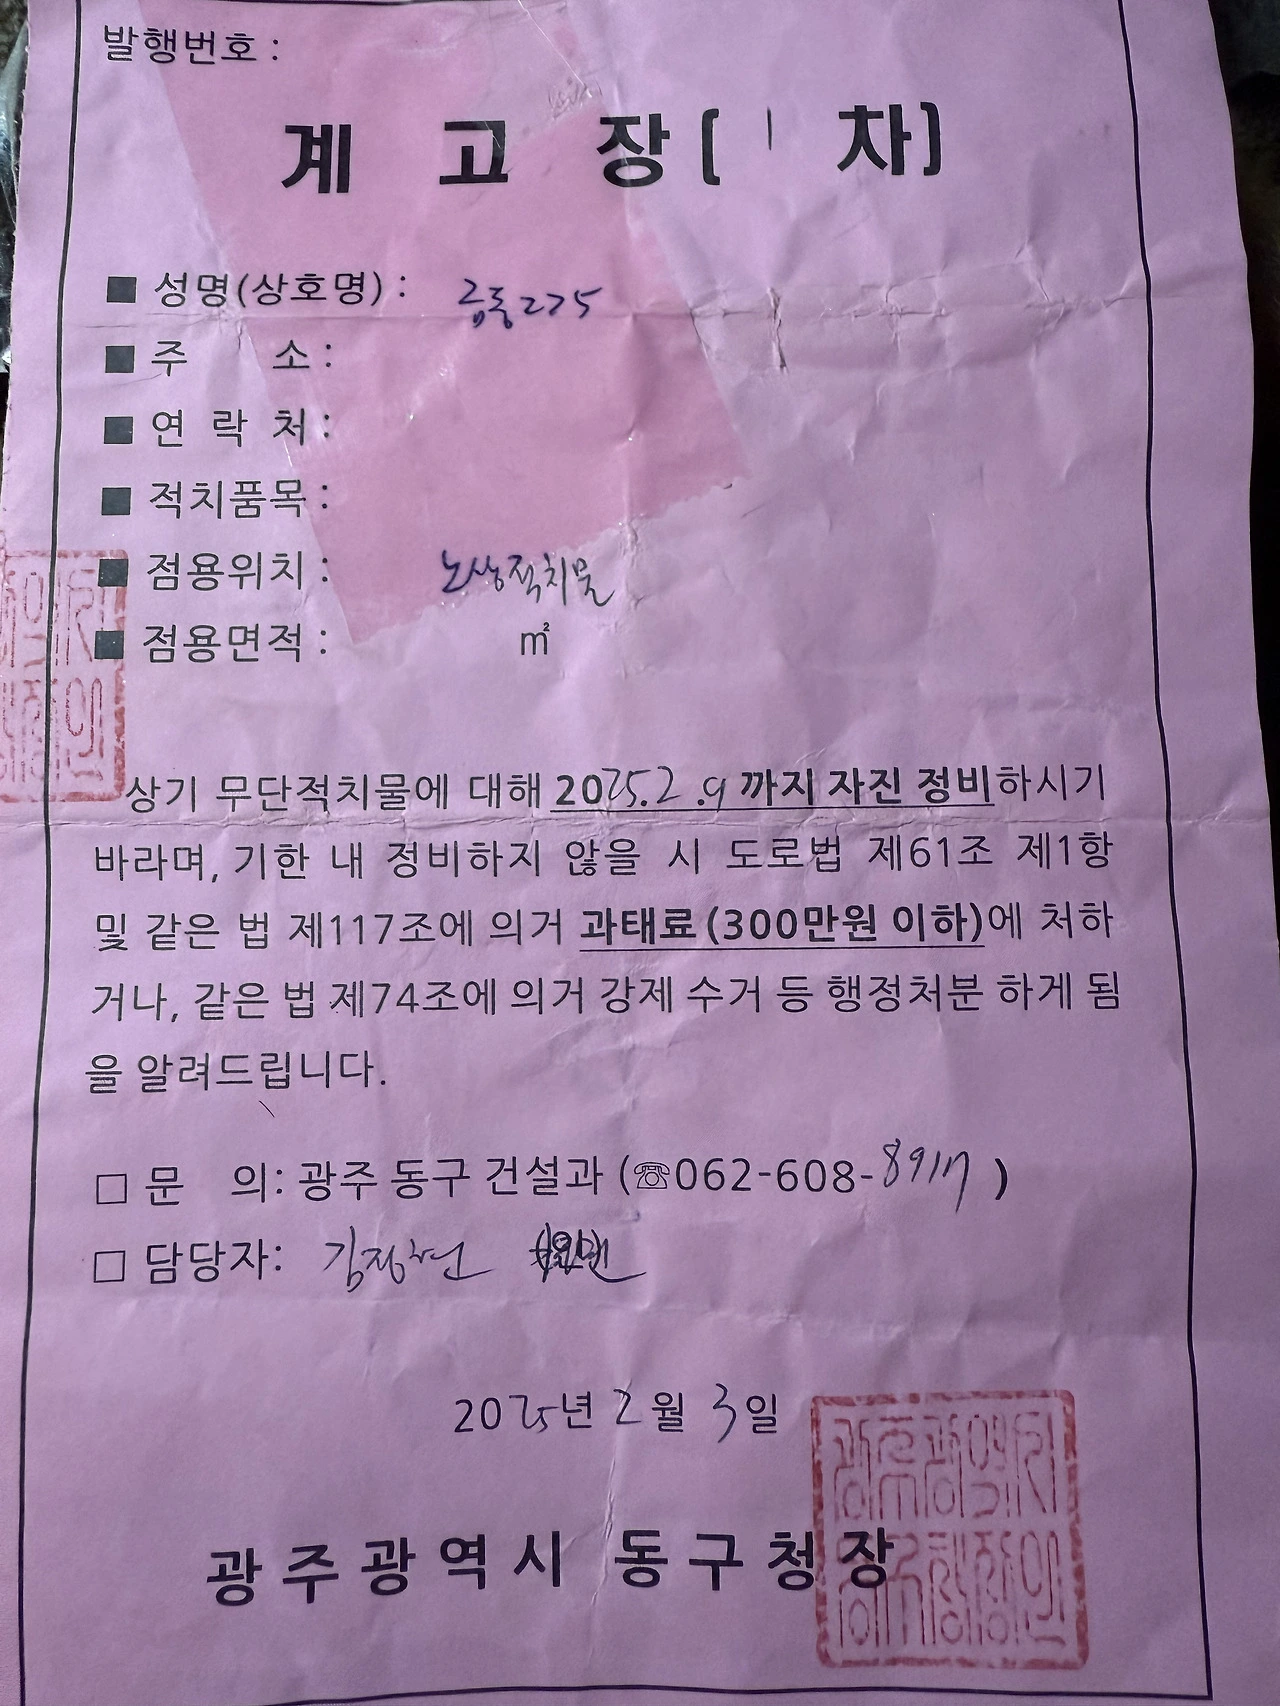 발행번호 :
계 고 장 [ 1 차]
■ 성명(상호명) : 금동225
■ 주 소 :
■ 연 락 처 :
■ 적치품목 :
■ 점용위치 : 노상적치물
■ 점용면적 : ㎡
상기 무단적치물에 대해 2025.2.9까지 자진 정비하시기
바라며, 기한 내 정비하지 않을 시 도로법 제61조 제1항
및 같은 법 제117조에 의거 과태료(300만원 이하)에 처하
거나, 같은 법 제74조에 의거 강제 수거 등 행정처분 하게 됨
을 알려드립니다.
□ 문 의: 광주 동구 건설과 (☏062-608-8917)
□ 담당자: 김정현
2025년 2월 3일
광주광역시 동구청장